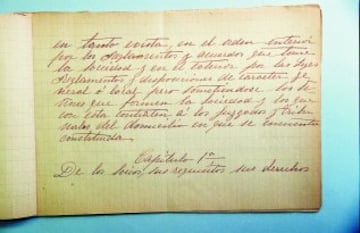 en tanto exista, en el orden interior
por los Reglamentos y acuerdos que tome
la sociedad y en el exterior por las leyes
Reglamentos y disposiciones de caracter ge
neral ó local pero sometiendose los se
ñores que formen la sociedad y los que
con esta contraten á los juzgados y tribu
nales del domicilio en que se encuentre
constituida.
Capítulo 1º
De los socios, sus requisitos sus derechos